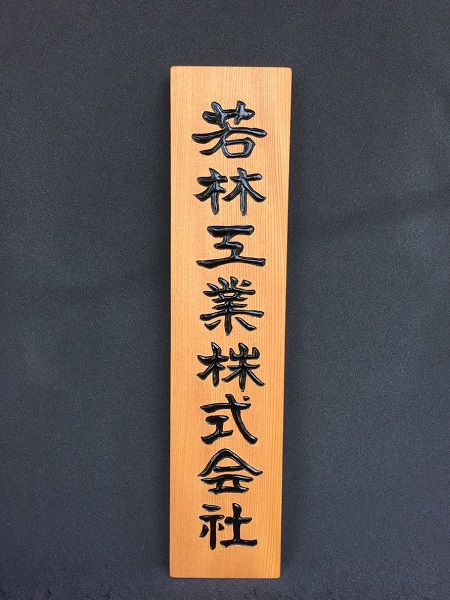 若林工業株式会社